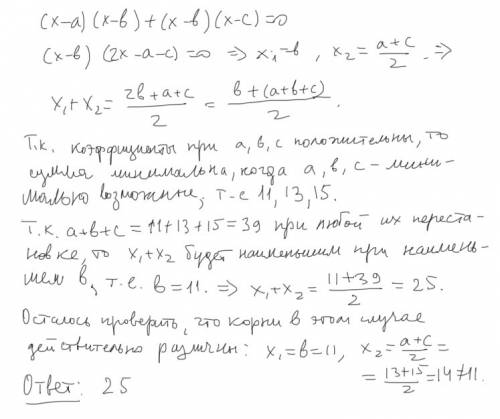 (x-a)(x-b)+(x-b)(x-c)=0
(x-b)(2x-a-c)=0 ⇒ x₁=b, x₂=\frac{a+c}{2}. ⇒
x₁+x₂=\frac{2b+a+c}{2}=\frac{b+(a+b+c)}{2}.
Т.к. коэффициенты при a,b,c положительны, то
сумма минимальна, когда a,b,c - мини-
мально возможные, т.е 11, 13, 15.
Т.к. a+b+c=11+13+15=39 при любой их переста-
новке, то x₁+x₂ будет наименьшим при наимень-
шем b, т.е. b=11. ⇒ x₁+x₂=\frac{11+39}{2}=25.
Осталось проверить, что корни в этом случае
действительно различны: x₁=b=11, x₂=\frac{a+c}{2}=
=\frac{13+15}{2}=14≠11.
Ответ: 25